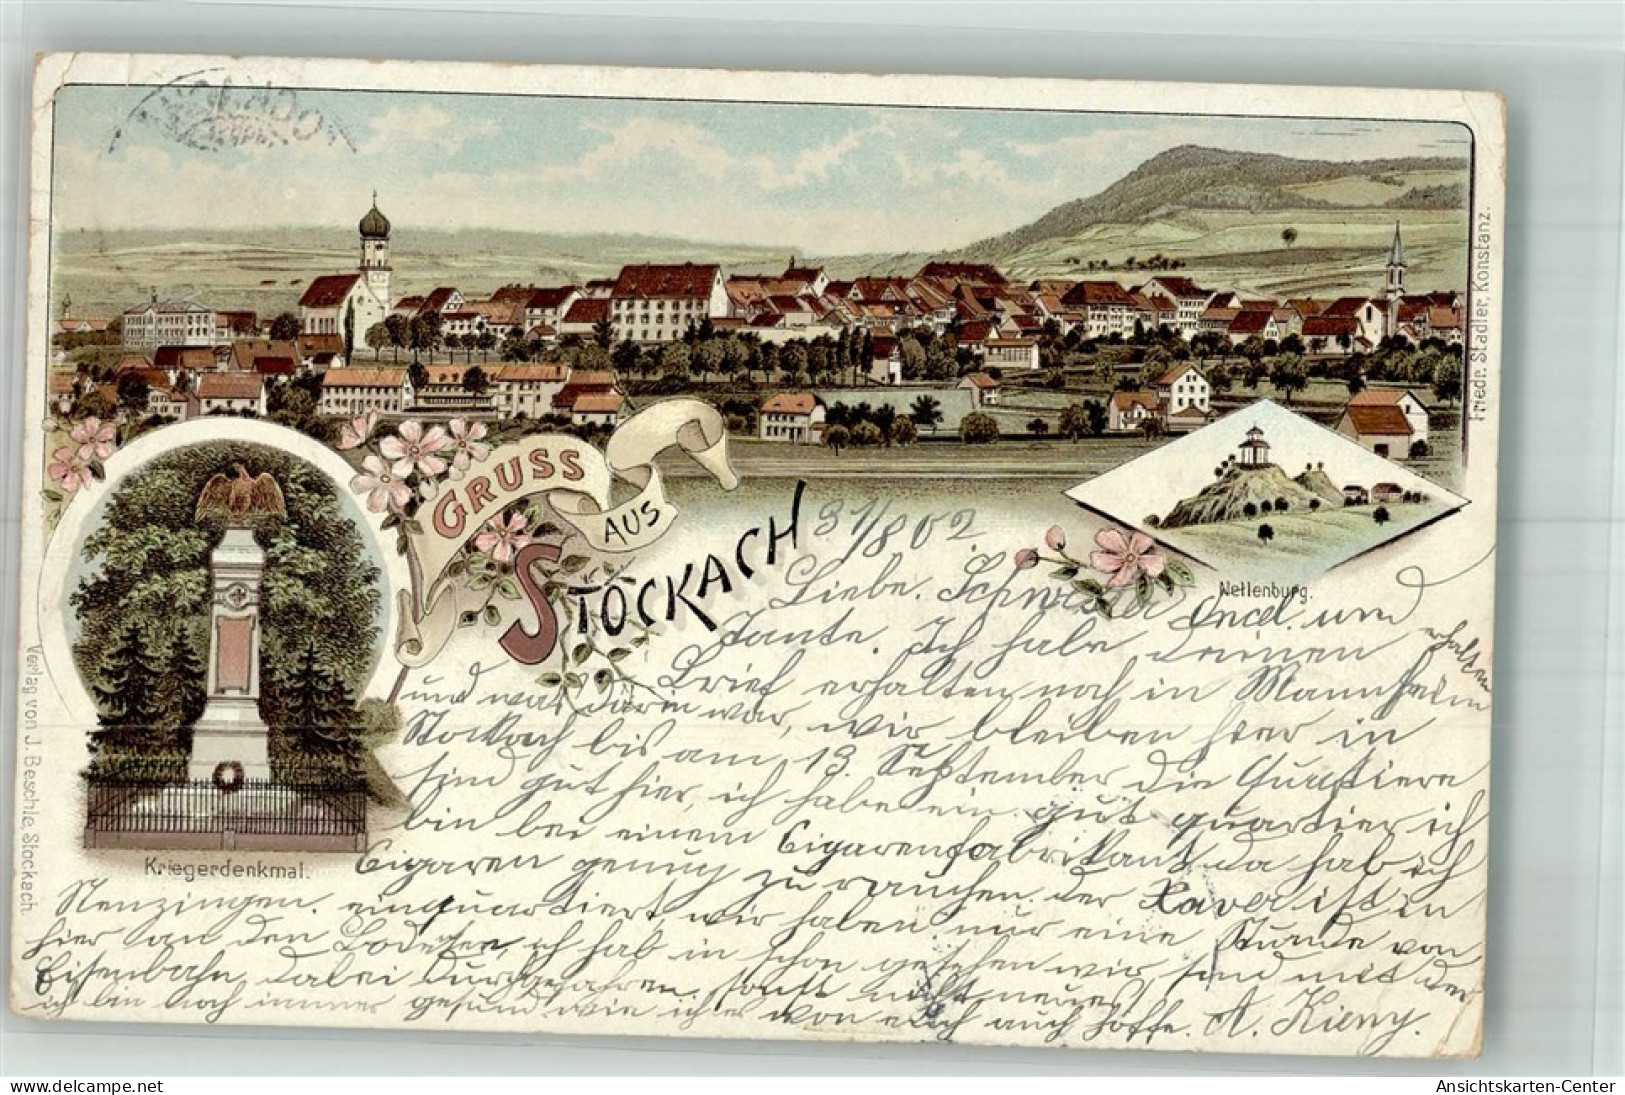 GRUSS
AUS
STOCKACH
31/8 02
Nellenburg.
Kriegerdenkmal.
Friedr. Stadler, Konstanz.
Verlag von J. Beschle, Stockach.
Liebe. Schwester Onel. und
Tante. Ich habe deinen
Brief erhalten noch in Mannheim erhalten
und was darin war, wir bleiben hier in
Stockach bis am 13. September die Quartiere
sind gut hier, ich habe ein gut quartier ich
bin bei einem Cigarenfabrikant da hab ich
Cigaren genug zu rauchen. der Xaver ist in
Nenzingen. einquartiert, wir haben nur eine Stunde von
hier an den Bodesee, ich hab in schon gesehen wir sind mit der
Eisenbahn, dabei durchgefahren. sonst nichts neues
ich bin noch immer gesund wie ich es von euch auch hoffe. A. Kieny.
Ansichtskarten-Center